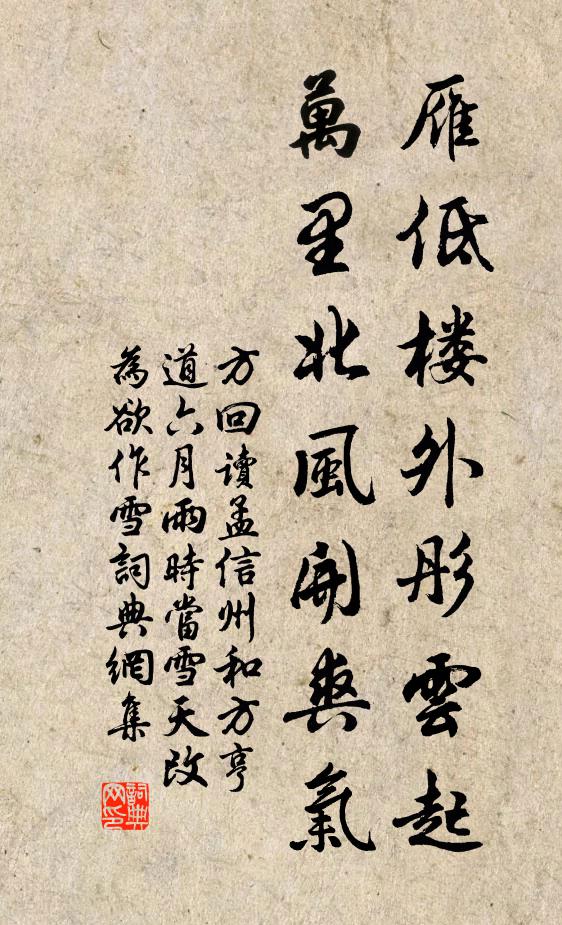 雁低楼外彤雲起
萬里北風開爽氣
方回讀孟信州和方亨
道六月雨時當雪天改
為欲作雪詞典網集
詞典網印